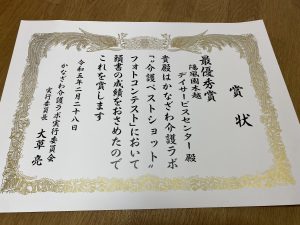 賞状
最優秀賞
陽風園本館
デイサービスセンター 殿
貴殿はかなざわ介護ラボ
"介護ベストショット"
フォトコンテストにおいて
頭書の成績をおさめたので
これを賞します
令和五年二月二十八日
かなざわ介護ラボ実行委員会
実行委員長 大草 亮